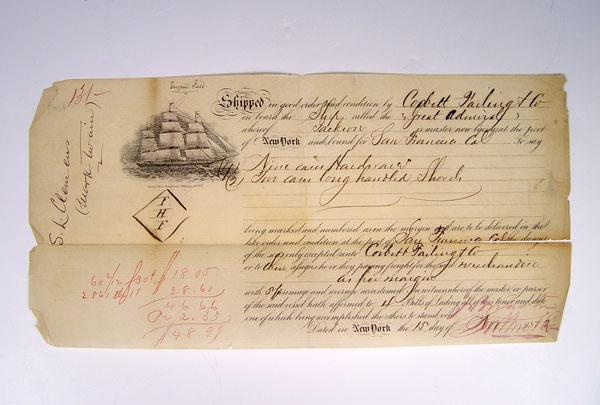 131-
Eugene Field
S. L. Clemens
(Mark Twain)
Shipped in good order and condition by Corbett Failing & Co
on board the Ship called the Great Admiral
whereof Jackson is master now lying at the port
of New York and bound for San Francisco Cal To say
Nine Cases Hardware
Two Cases long handled Shovels
F
H
F
being marked and numbered as in the margin & are to be delivered in the
like order and condition at the port of San Francisco Cal the danger
of the seas only excepted, unto Corbett Failing & Co
or to their assigns he or they paying freight for the said merchandise
as per margin
with 5% primage and average accustomed. In witness whereof the master or purser
of the said vessel hath affirmed to 4 Bills of Lading all of this tenor and date
one of which being accomplished the others to stand void.
Dated in New York the 15 day of
18.05
28.61
46.66
Pr 2.33
$48.99